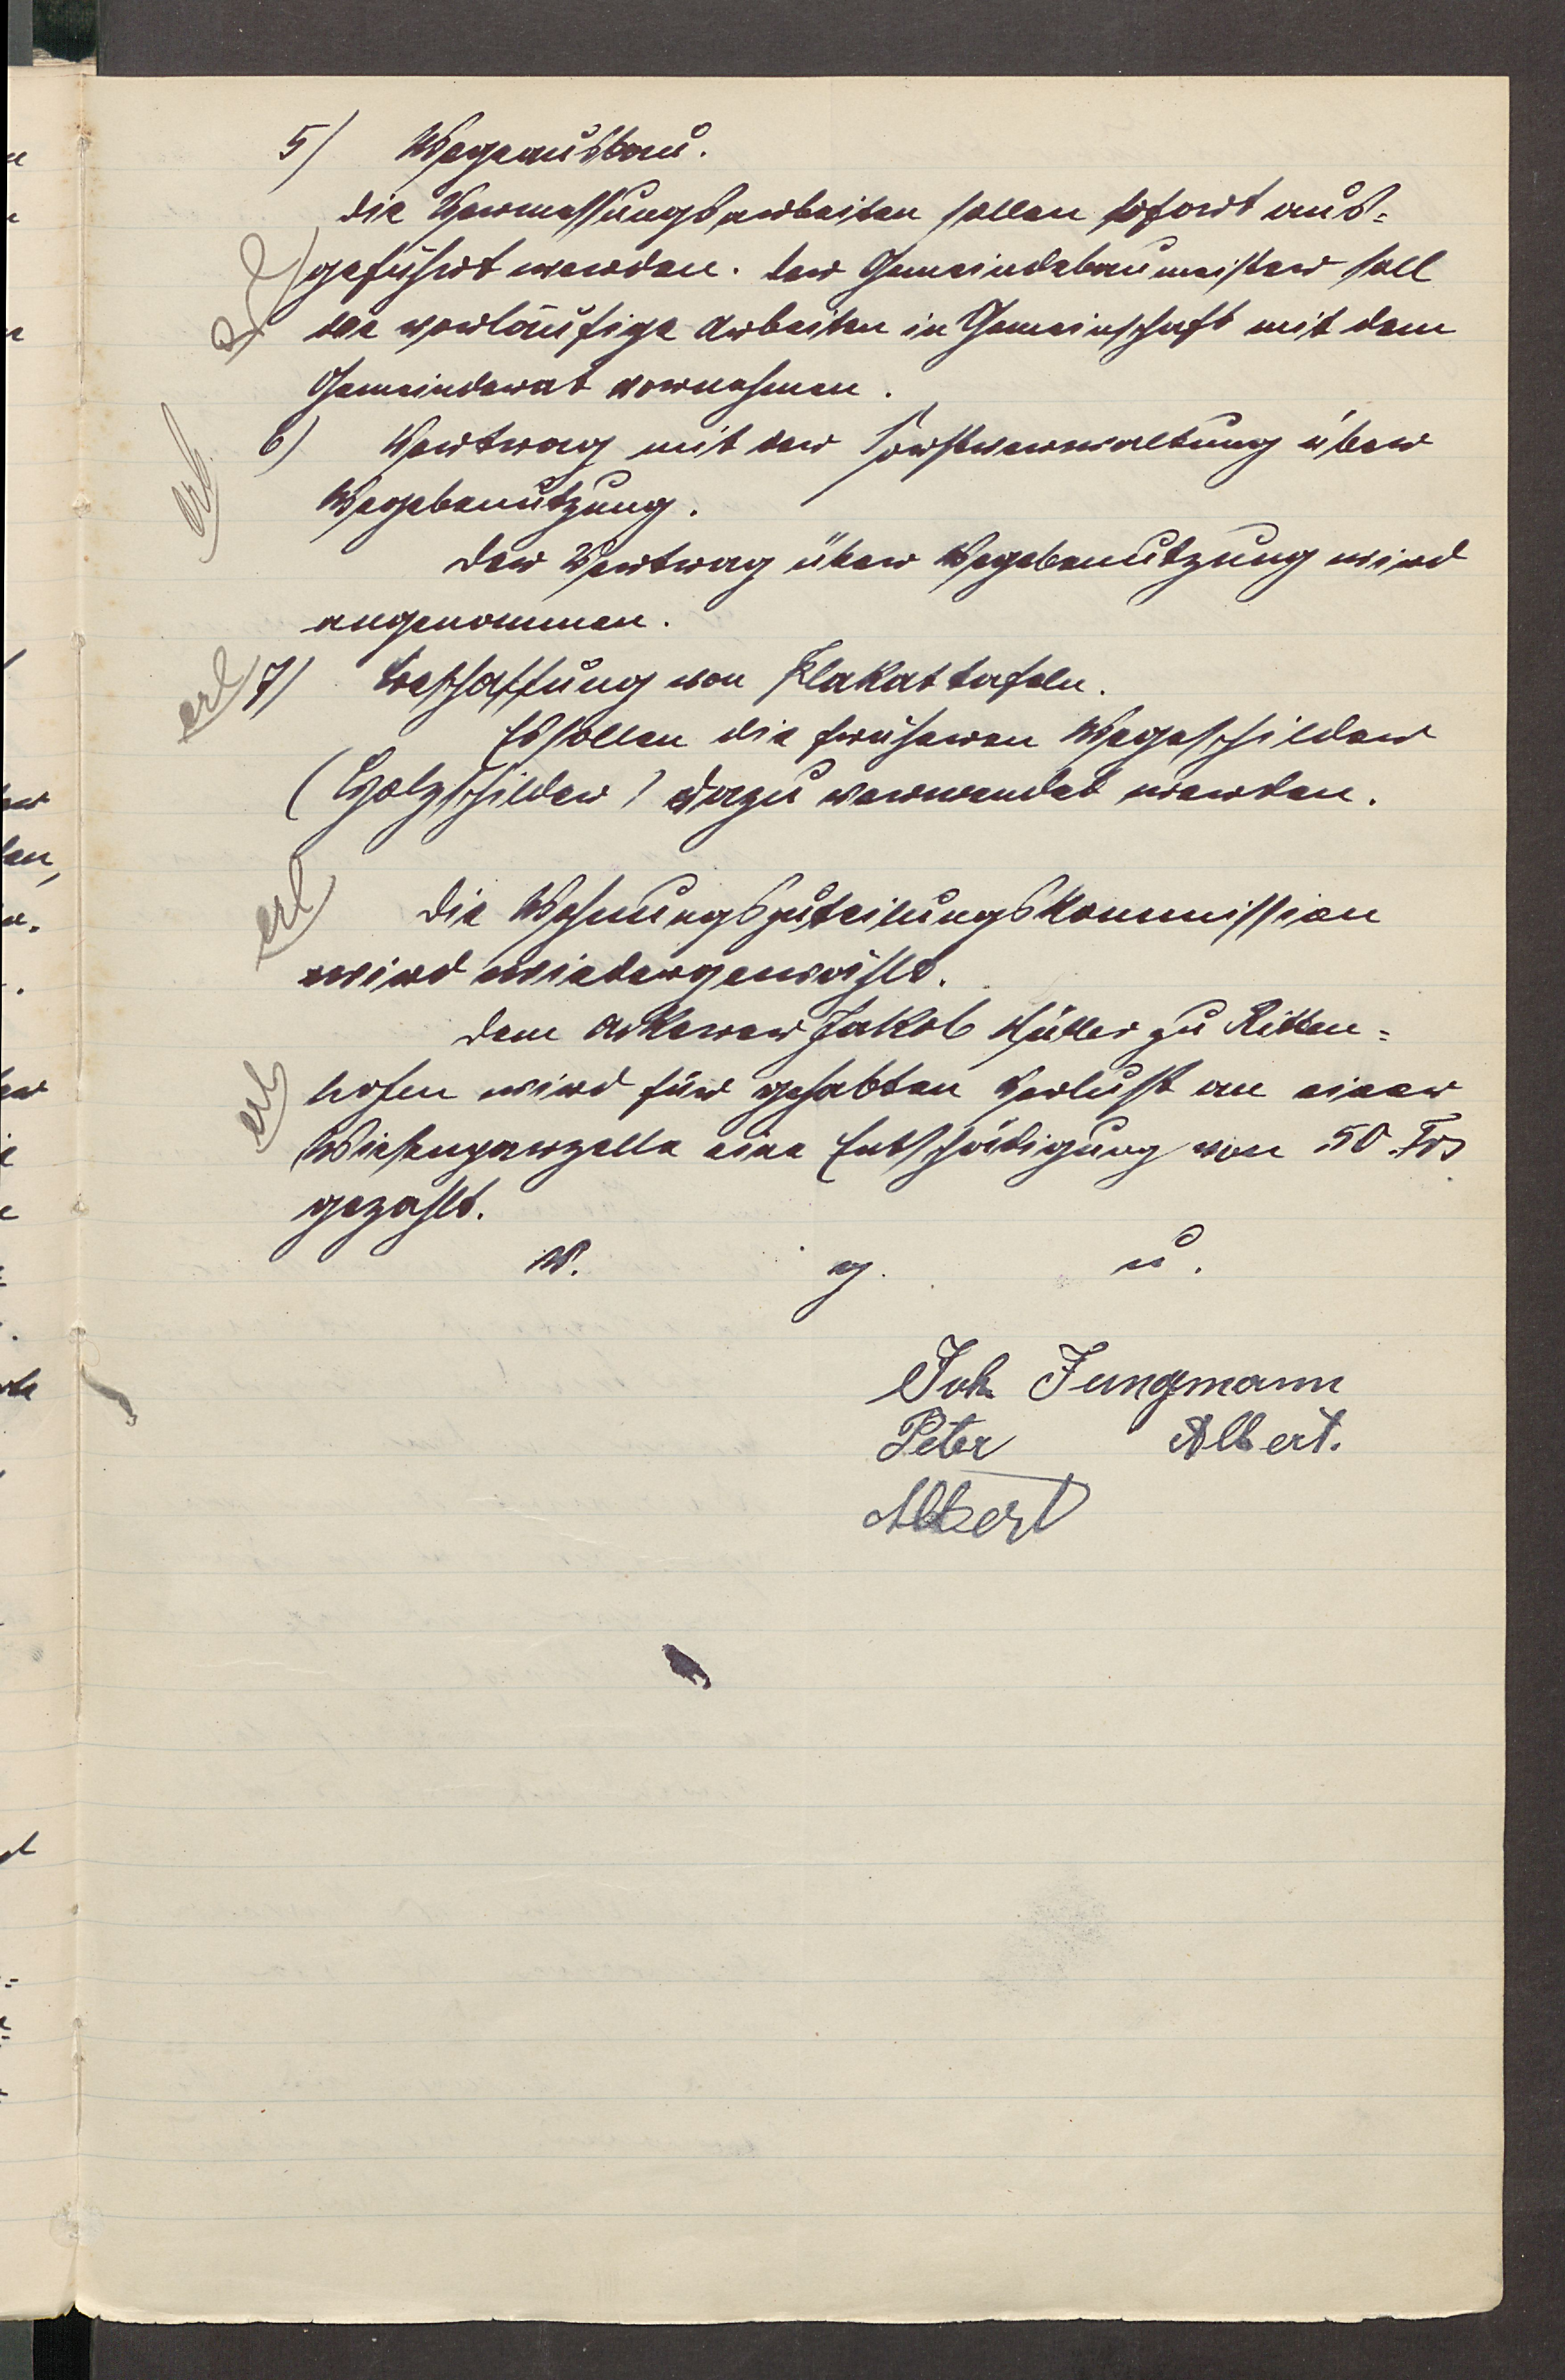 5) Wegeausbau.
Die Vermessungsarbeiten sollen sofort aus-
erl geführt werden. Der Gemeindebaumeister soll
die vorläufige Arbeiten in Gemeinschaft mit dem
Gemeinderat vornehmen.
erl. 6) Vertrag mit der Forstverwaltung über
Wegebenutzung.
Der Vertrag über Wegebenutzung wird
angenommen.
erl 7) Beschaffung von Plakattafeln.
Es sollen die früheren Wegeschilder
(Holzschilder) dazu verwendet werden.
erl Die Wohnungszuteilungskommission
wird wiedergewählt.
Dem Ackerer Jakob Müller zu Ritten-
erl hofen wird für gehabten Verlust an einer
Wiesenparzelle eine Entschädigung von 50 Frs
gezahlt.
v. g. u.
Joh Jungmann
Peter Albert.
Albert